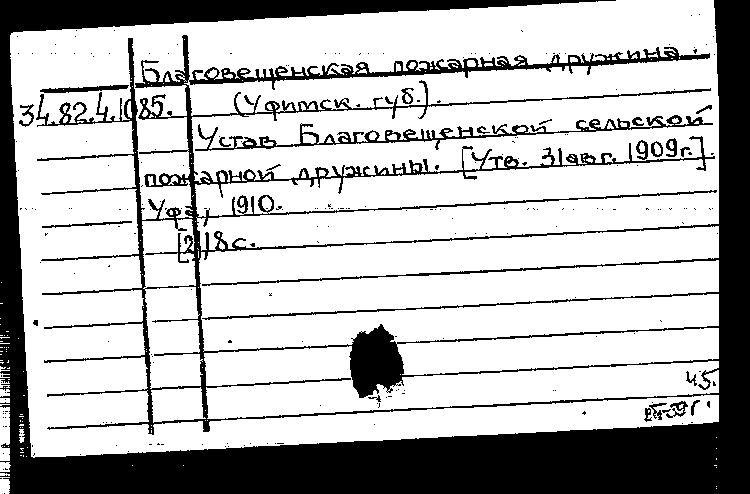 Благовещенская пожарная дружина.
34.82.4.1085. (Уфимск. губ.).
Устав Благовещенской сельской
пожарной дружины. [Утв. 31 авг. 1909г.].
Уфа, 1910.
[2],8с.
ч.5.